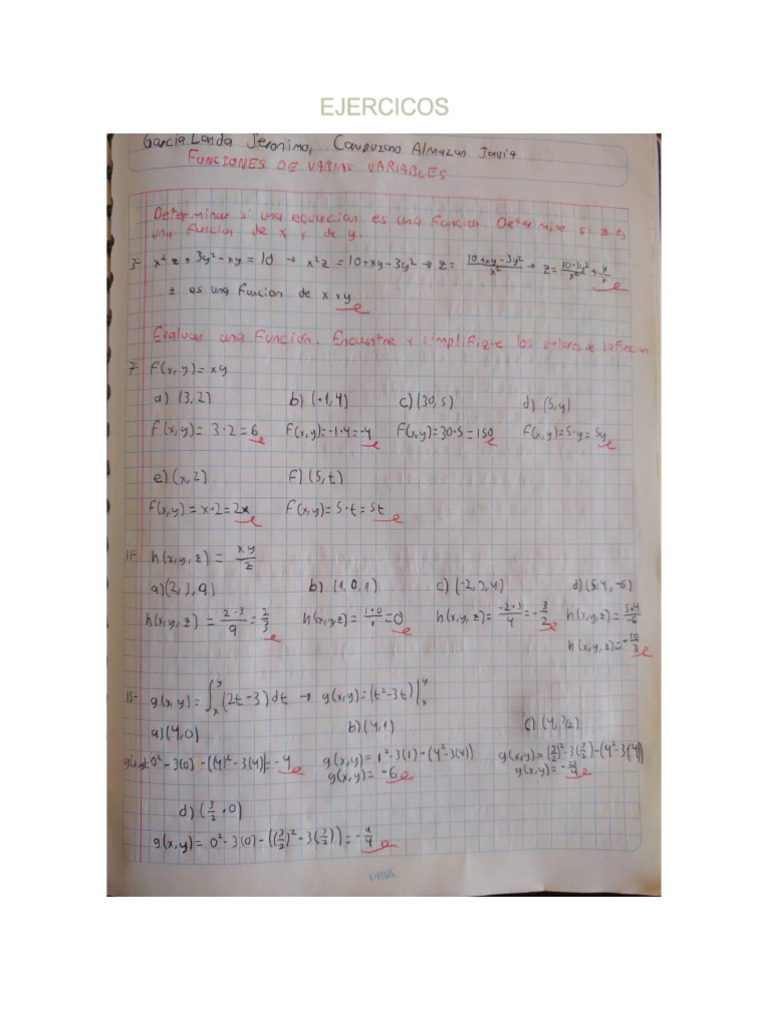 EJERCICOS
Garcia Landa Jeronimo, Campuzano Almazan
FUNCIONES DE VARIAS VARIABLES
Determinar si una ecuacion es una funcion. Determine si z es
una funcion de x y de y.
3- x²z + 3y² - xy = 10 → x²z = 10 + xy - 3y² → z = (10 + xy - 3y²)/x² → z = (10 - 3y²)/x² + y/x
z es una funcion de x y y
Evaluar una funcion. Encuentre y simplifique los valores de la funcion
7- f(x,y) = xy
a) (3,2) b) (-1,4) c) (30,5) d) (5,y)
f(x,y) = 3·2 = 6 f(x,y) = -1·4 = -4 f(x,y) = 30·5 = 150 f(x,y) = 5·y = 5y
e) (x,2) F) (5,t)
f(x,y) = x·2 = 2x f(x,y) = 5·t = 5t
11- h(x,y,z) = xy/z
a) (2,3,9) b) (1,0,1) c) (-2,3,4) d) (5,4,-6)
h(x,y,z) = 2·3/9 = 2/3 h(x,y,z) = 1·0/1 = 0 h(x,y,z) = -2·3/4 = -3/2 h(x,y,z) = 5·4/-6
h(x,y,z) = -10/3
15- g(x,y) = ∫ₓʸ (2t - 3) dt → g(x,y) = (t² - 3t)|ₓʸ
a) (4,0) b) (4,1) c) (4,3/2)
g(x,y) = 0² - 3(0) - (4)² - 3(4) = -4 g(x,y) = 1² - 3(1) - (4² - 3(4)) g(x,y) = (3/2)² - 3(3/2) - (4² - 3(4))
g(x,y) = -6 g(x,y) =
d) (3/2,0)
g(x,y) = 0² - 3(0) - ((3/2)² - 3(3/2)) =